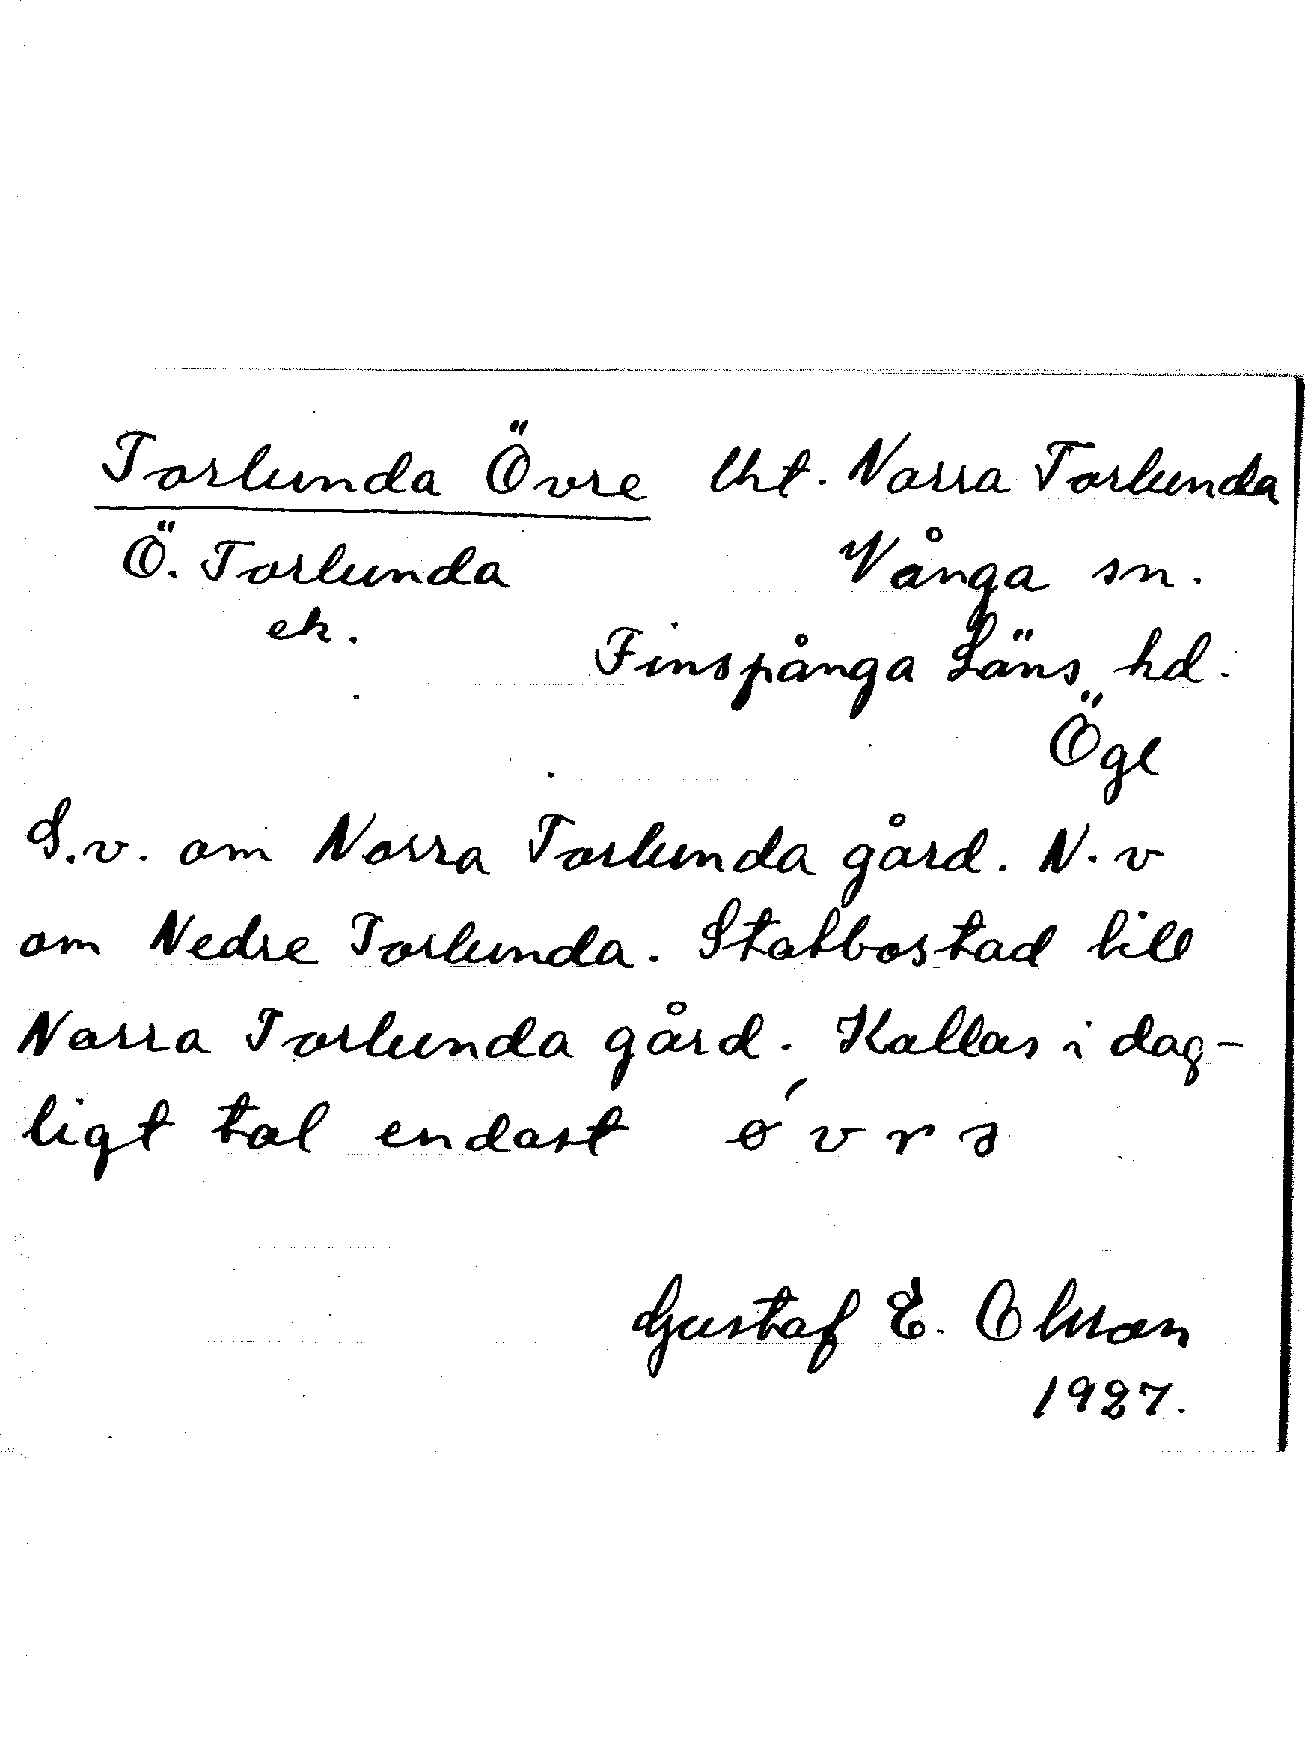 Torlunda Övre lht. Norra Torlunda
Ö. Torlunda Vånga sn.
ek. Finspånga Läns hd.
Ögl
S.v. om Norra Torlunda gård. N.v
om Nedre Torlunda. Statbostad till
Norra Torlunda gård. Kallas i dag-
ligt tal endast
Gustaf E. Olsson
1927.